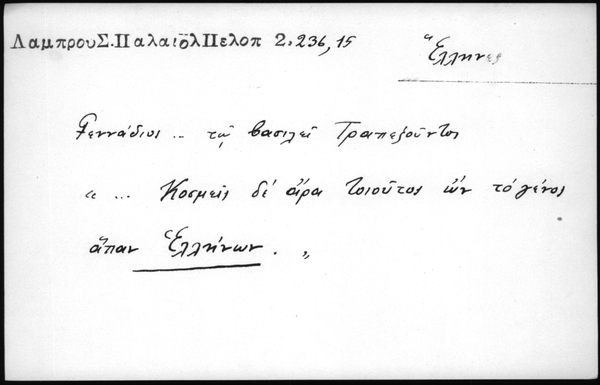 ΛαμπρουΣ.ΠαλαιολΠελοπ 2.236,15
Ἕλληνες
Γεννάδιος .. τῷ βασιλεῖ Τραπεζοῦντος
" ... Κοσμεῖς δέ ἄρα τοιοῦτος ὤν τό γένος
ἅπαν Ἑλλήνων . "